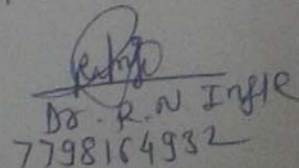 Dr. R. N Ingle
7798164932